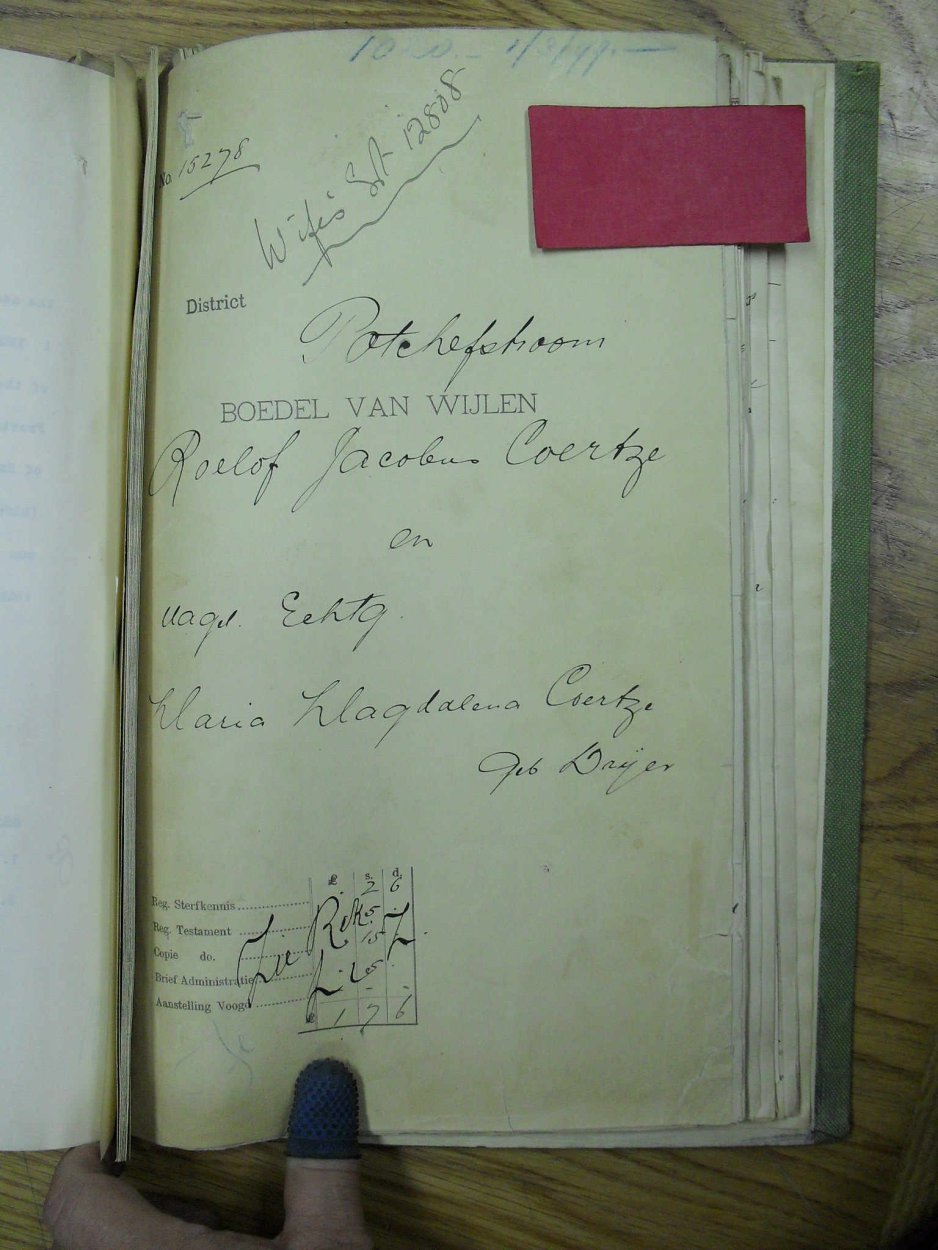 No 15278
Wife's Est 12808
District
Potchefstroom
BOEDEL VAN WIJLEN
Roelof Jacobus Coertze
en
nagel. Echtg.
Maria Magdalena Coertze
Geb Drijer
£ s. d.
Reg. Sterfkennis 2 6
Reg. Testament 5
Copie do. 15
Brief Administratie 5
Aanstelling Voogd
£ 1 7 6